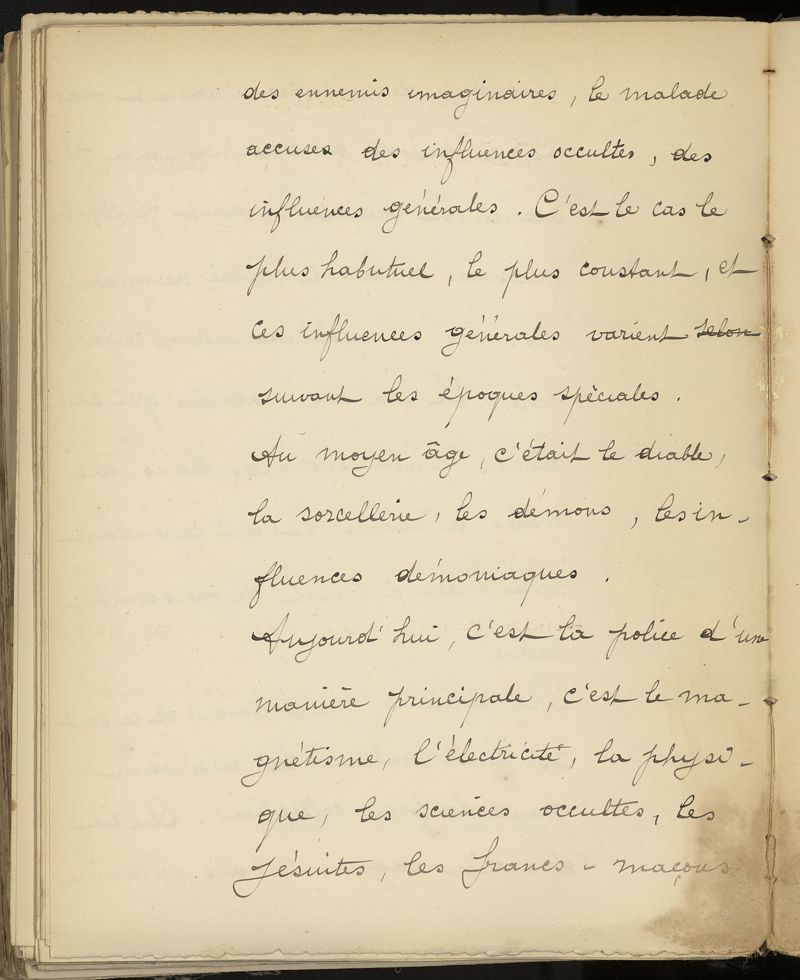 des ennemis imaginaires, le malade
accuse des influences occultes, des
influences générales. C'est le cas le
plus habituel, le plus constant, et
ces influences générales varient selon
suivant les époques spéciales.
Au moyen âge, c'était le diable,
la sorcellerie, les démons, les in-
fluences démoniaques.
Aujourd'hui, c'est la police d'une
manière principale, c'est le ma-
gnétisme, l'électricité, la physi-
que, les sciences occultes, les
Jésuites, les francs-maçons